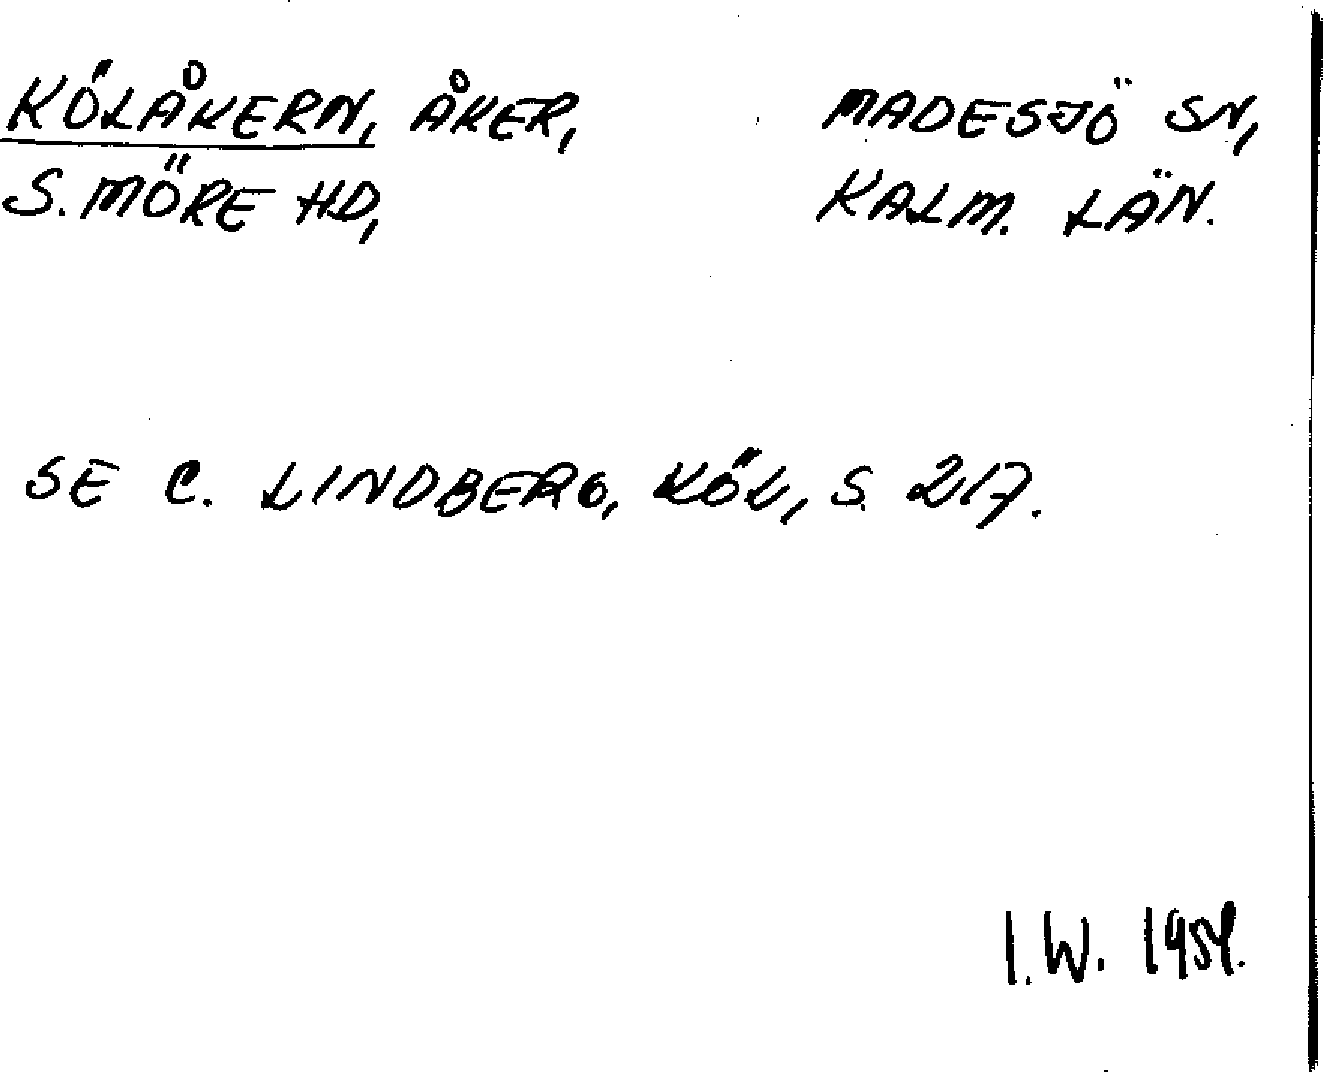 KÖLÅKERN, ÅKER, MADESJÖ SN,
S. MÖRE HD, KALM. LÄN.
SE C. LINDBERG, KÖL, S. 217.
I.W. 1959.